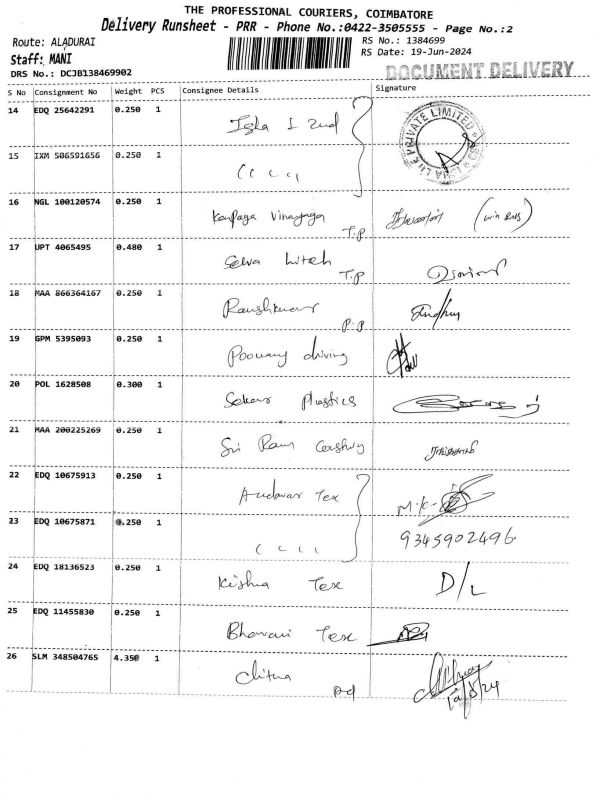 THE PROFESSIONAL COURIERS, COIMBATORE
Delivery Runsheet - PRR - Phone No.:0422-3505555 - Page No.:2
Route: ALADURAI
RS No.: 1384699
Staff: MANI
RS Date: 19-Jun-2024
DRS No.: DCJB138469902
DOCUMENT DELIVERY
S No Consignment No Weight PCS Consignee Details Signature
14 EDQ 25642291 0.250 1
PRIVATE LIMITED
15 IXM 506591656 0.250 1 " " "
16 NGL 100120574 0.250 1 Vinayaga
T.P
17 UPT 4065495 0.480 1 Selva hitech
T.P
18 MAA 866364167 0.250 1
P.P
19 GPM 5395093 0.250 1 driving
20 POL 1628508 0.300 1 Sekar Plastics
21 MAA 200225269 0.250 1 Sri Ram
22 EDQ 10675913 0.250 1 Andavar Tex M.K.
23 EDQ 10675871 0.250 1 " " " 9345902496
24 EDQ 18136523 0.250 1 Kishna Tex D/L
25 EDQ 11455830 0.250 1 Bhavani Tex
26 SLM 348504765 4.350 1 Chitra